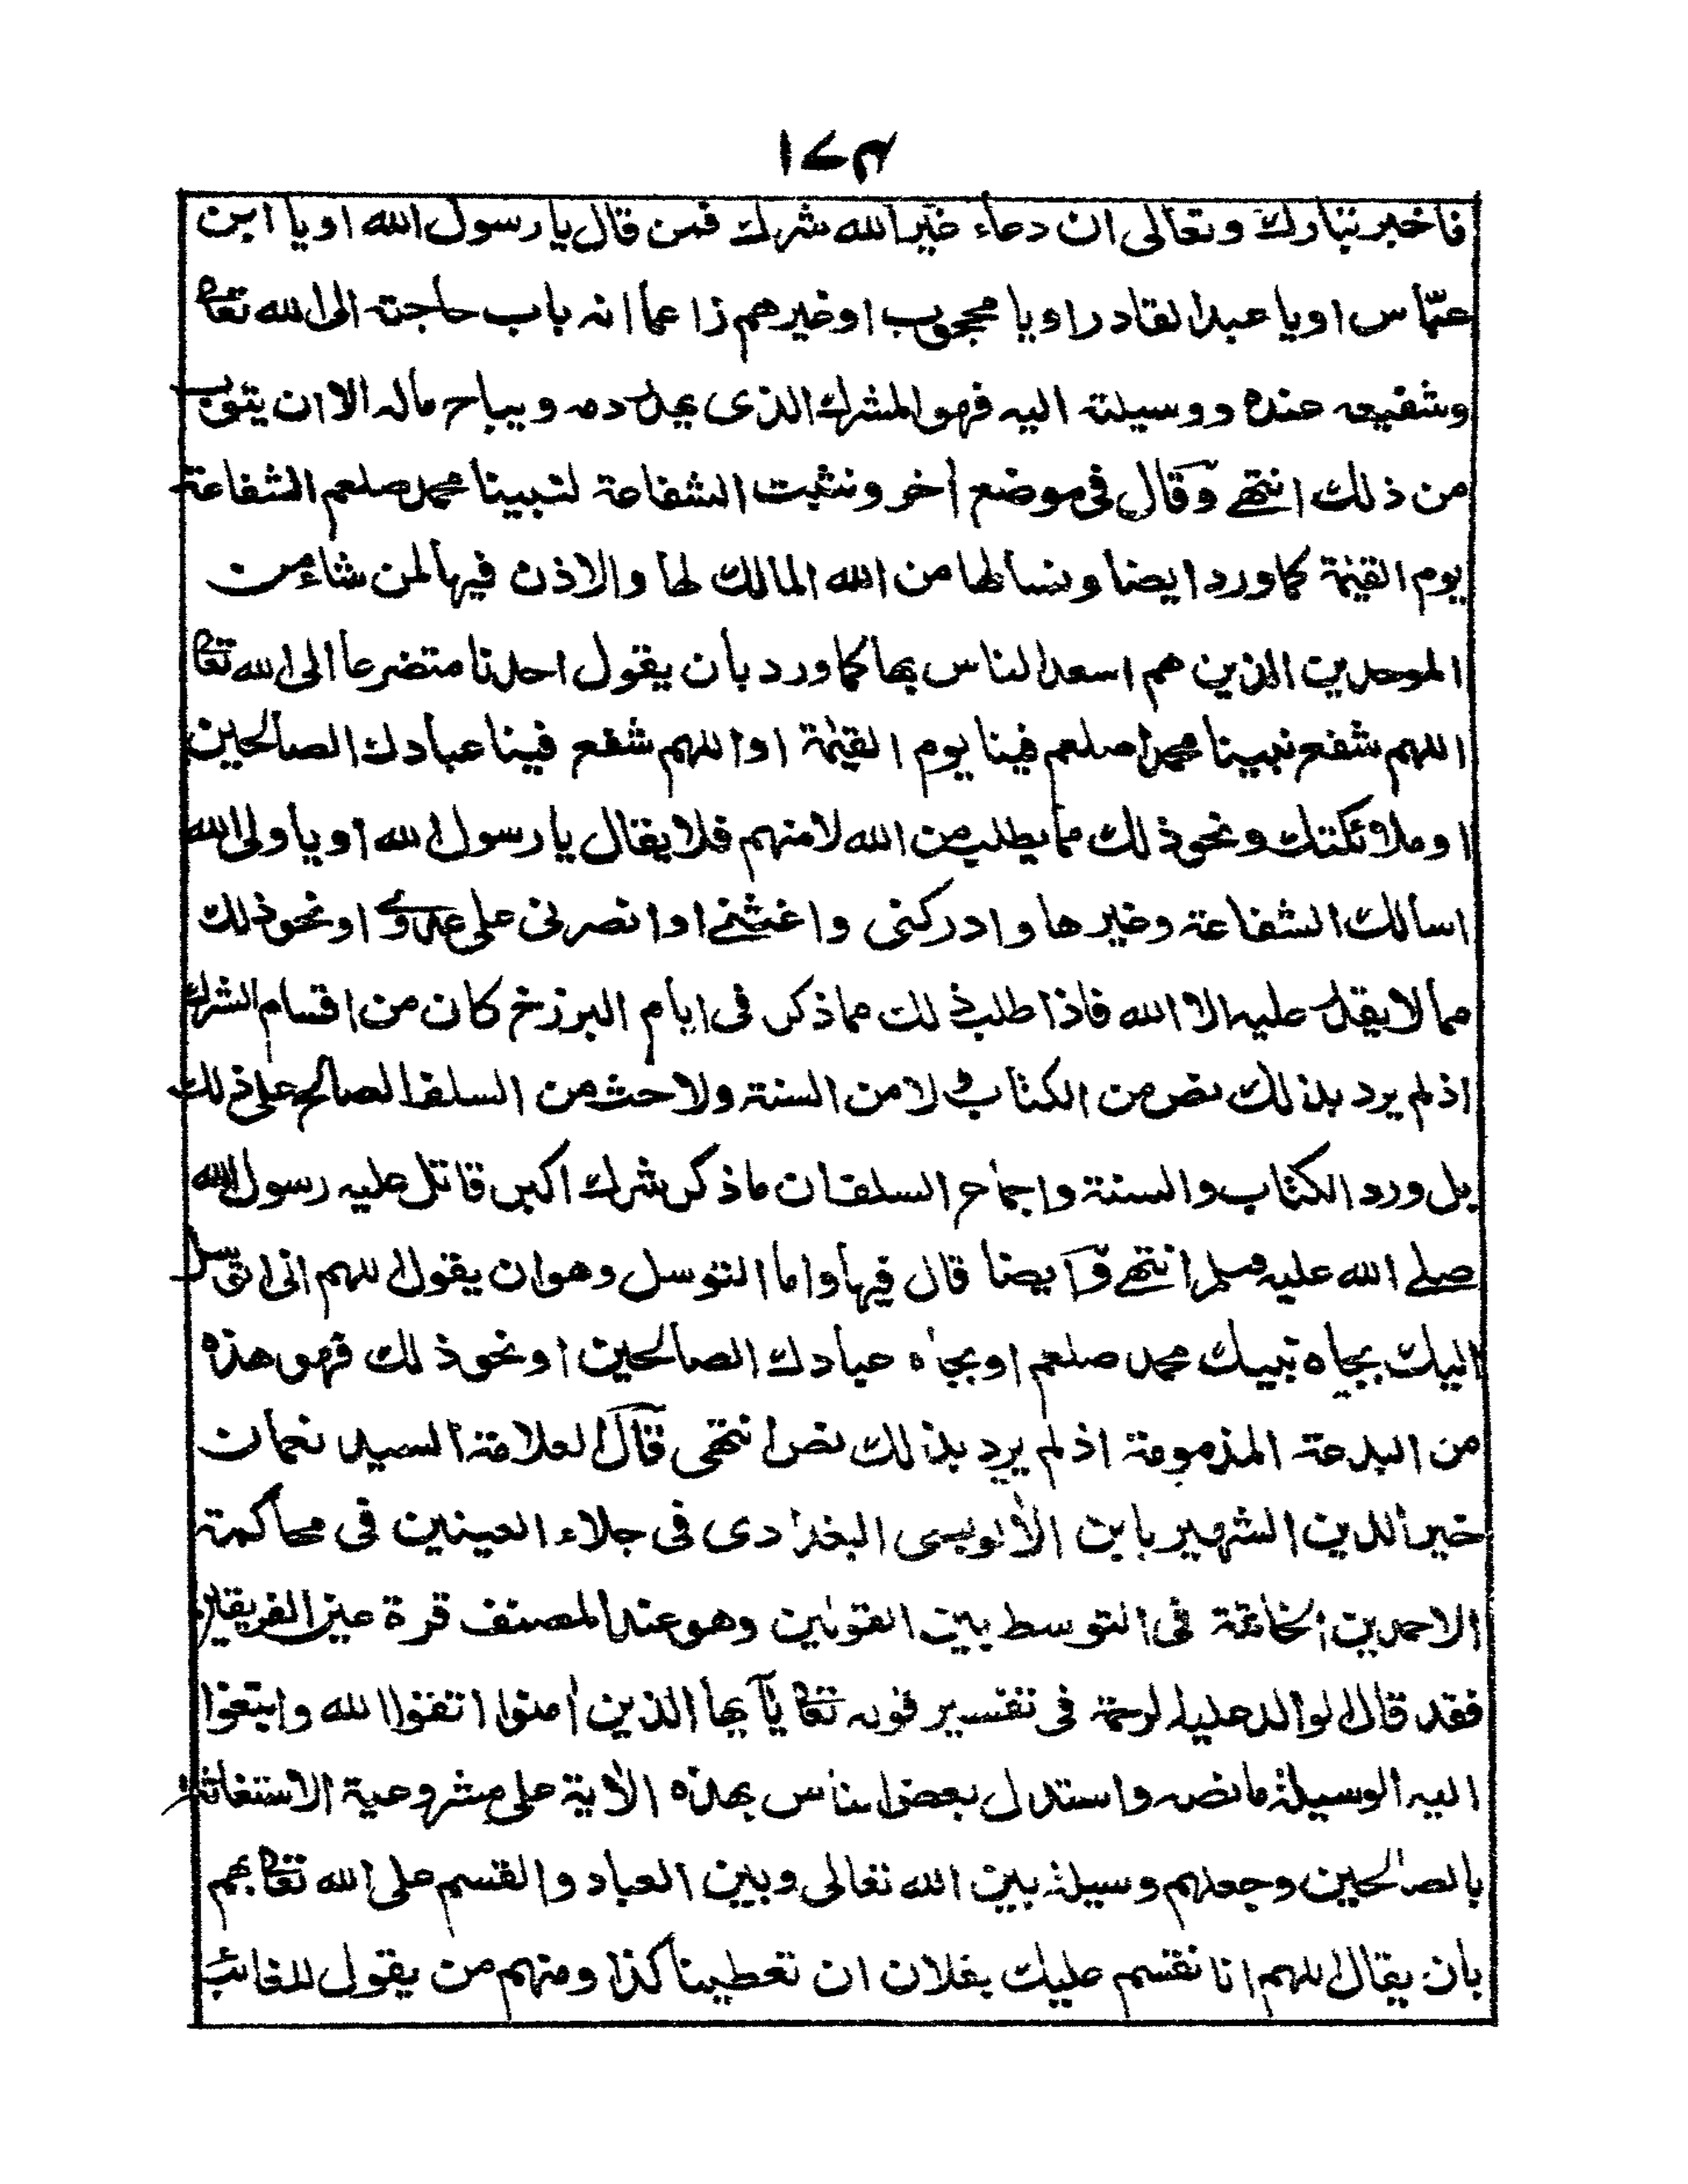 ١٧٣
فاخبر تبارك وتعالى ان دعاء غير الله شرك فمن قال يا رسول الله او يا ابن
عبّاس او يا عبد القادر او يا محجوب او غيرهم زاعما انه باب حاجته الى الله تعالى
وشفيعه عنده ووسيلته اليه فهو المشرك الذى يهدر دمه ويباح ماله الا ان يتوب
من ذلك انتهى وقال فى موضع آخر ونثبت الشفاعة لنبينا محمد صلعم الشفاعة
يوم القيمة كما ورد ايضا ونسالها من الله المالك لها والاذن فيها لمن شاء من
الموحدين الذين هم اسعد الناس بها كما ورد بأن يقول احدنا متضرعا الى الله تعالى
اللهم شفع نبينا محمدا صلعم فينا يوم القيمة او اللهم شفع فينا عبادك الصالحين
او ملائكتك ونحو ذلك مما يطلب من الله لا منهم فلا يقال يا رسول الله او يا ولى الله
اسالك الشفاعة وغيرها وادركنى واغثنى او انصرنى على عدوى او نحو ذلك
مما لا يقدر عليه الا الله فاذا طلب ذلك مما ذكر فى ايام البرزخ كان من اقسام الشرك
اذ لم يرد بذلك نص من الكتاب ولا من السنة ولا حث من السلف الصالح على ذلك
بل ورد الكتاب والسنة واجماع السلف ان ما ذكر شرك اكبر قاتل عليه رسول الله
صلى الله عليه وسلم انتهى وايضا قال فيها واما التوسل وهو ان يقول اللهم انى اتوسل
اليك بجاه نبيك محمد صلعم او بجاه عبادك الصالحين او نحو ذلك فهو هذه
من البدعة المذمومة اذ لم يرد بذلك نص انتهى قال العلامة السيد نعمان
خير الدين الشهير بابن الألوسى البغدادى فى جلاء العينين فى محاكمة
الاحمدين الخاتمة فى التوسط بين القولين وهو عند المصنف قرة عين الفريقين
فقد قال الوالد عليه الرحمة فى تفسير قوله تعالى يآ يها الذين امنوا اتقوا الله وابتغوا
اليه الوسيلة ما نصه واستدل بعض الناس بهذه الأية على مشروعية الاستغاثة
بالصالحين وجعلهم وسيلة بين الله تعالى وبين العباد والقسم على الله تعالى بهم
بان يقال اللهم انا نقسم عليك بفلان ان تعطينا كذا ومنهم من يقول للغائب